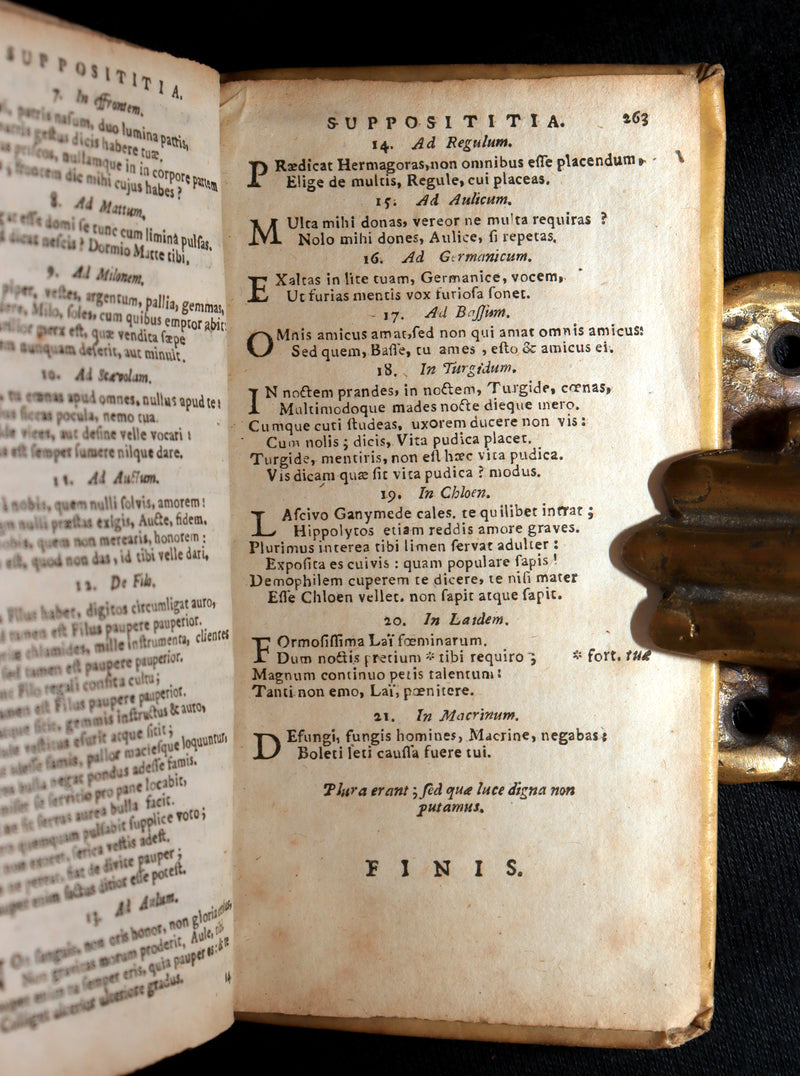 SUPPOSITITIA.
7. In effrontem.
duo lumina pattis,
dicis habere tuæ,
nullamque in in corpore partem
die mihi cujus habes?
8. Ad Mattum,
eſſe domi ſe tunc cum liminâ pulſas,
neſcis? Dormio Matte tibi,
9. Ad Milonem,
piper, veſtes, argentum, pallia, gemmas,
Milo, ſoles, cum quibus emptor abit:
eſt, quæ vendita ſæpe
nunquam deſerit, aut minuit.
10. Ad Scævolam.
cœnas apud omnes, nullus apud te:
ſiccas pocula, nemo tua.
vices, aut deſine velle vocari:
eſt ſemper ſumere nilque dare.
11. Ad Auctum.
nobis, quem nulli ſolvis, amorem:
nulli præſtas exigis, Aucte, fidem,
quem non merearis, honorem:
eſt, quod non das, id tibi velle dari,
12. De Filo.
Filus habet, digitos circumligat auro,
tamen eſt Filus paupere pauperior.
chlamides, mille inſtrumenta, clientes
tamen eſt paupere pauperior.
Filo regali conſita cultu;
eſt Filus paupere pauperior.
gemmis inſtructus & auro,
eſurit atque ſitit;
famis, pallor macieſque loquuntur,
negat pondus adeſſe famis.
ſervitio pro pane locabit,
ſervus aurea bulla facit.
ſupplice voto;
veſtis adeſt.
ne divite pauper;
eſſe poteſt.
13. Ad Aulum.
non eris honor, non gloria
morum proderit, Aule,
ſemper eris, quia pauper es:
ulteriore gradus.
14
SUPPOSITITIA. 263
14. Ad Regulum.
PRædicat Hermagoras, non omnibus eſſe placendum,
Elige de multis, Regule, cui placeas.
15. Ad Aulicum.
MUlta mihi donas, vereor ne multa requiras ?
Nolo mihi dones, Aulice, ſi repetas.
16. Ad Germanicum.
EXaltas in lite tuam, Germanice, vocem,
Ut furias mentis vox furioſa ſonet.
17. Ad Baſſum.
OMnis amicus amat, ſed non qui amat omnis amicus:
Sed quem, Baſſe, tu ames , eſto & amicus ei.
18. In Turgidum.
IN noctem prandes, in noctem, Turgide, cœnas,
Multimodoque mades nocte dieque mero.
Cumque cuti ſtudeas, uxorem ducere non vis:
Cum nolis ; dicis, Vita pudica placet.
Turgide, mentiris, non eſt hæc vita pudica.
Vis dicam quæ ſit vita pudica ? modus.
19. In Chloen.
LAſcivo Ganymede cales, te quilibet intrat ;
Hippolytos etiam reddis amore graves.
Plurimus interea tibi limen ſervat adulter :
Expoſita es cuivis : quam populare ſapis !
Demophilem cuperem te dicere, te niſi mater
Eſſe Chloen vellet. non ſapit atque ſapit.
20. In Laidem.
FOrmoſiſſima Laï fœminarum,
Dum noctis pretium * tibi requiro ; * fort. tuæ
Magnum continuo petis talentum:
Tanti non emo, Laï, pœnitere.
21. In Macrinum.
DEfungi, fungis homines, Macrine, negabas:
Boleti leti cauſſa fuere tui.
Plura erant ; ſed quæ luce digna non
putamus.
FINIS.